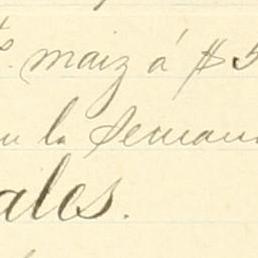 maiz á $5
en la Semana
ales.